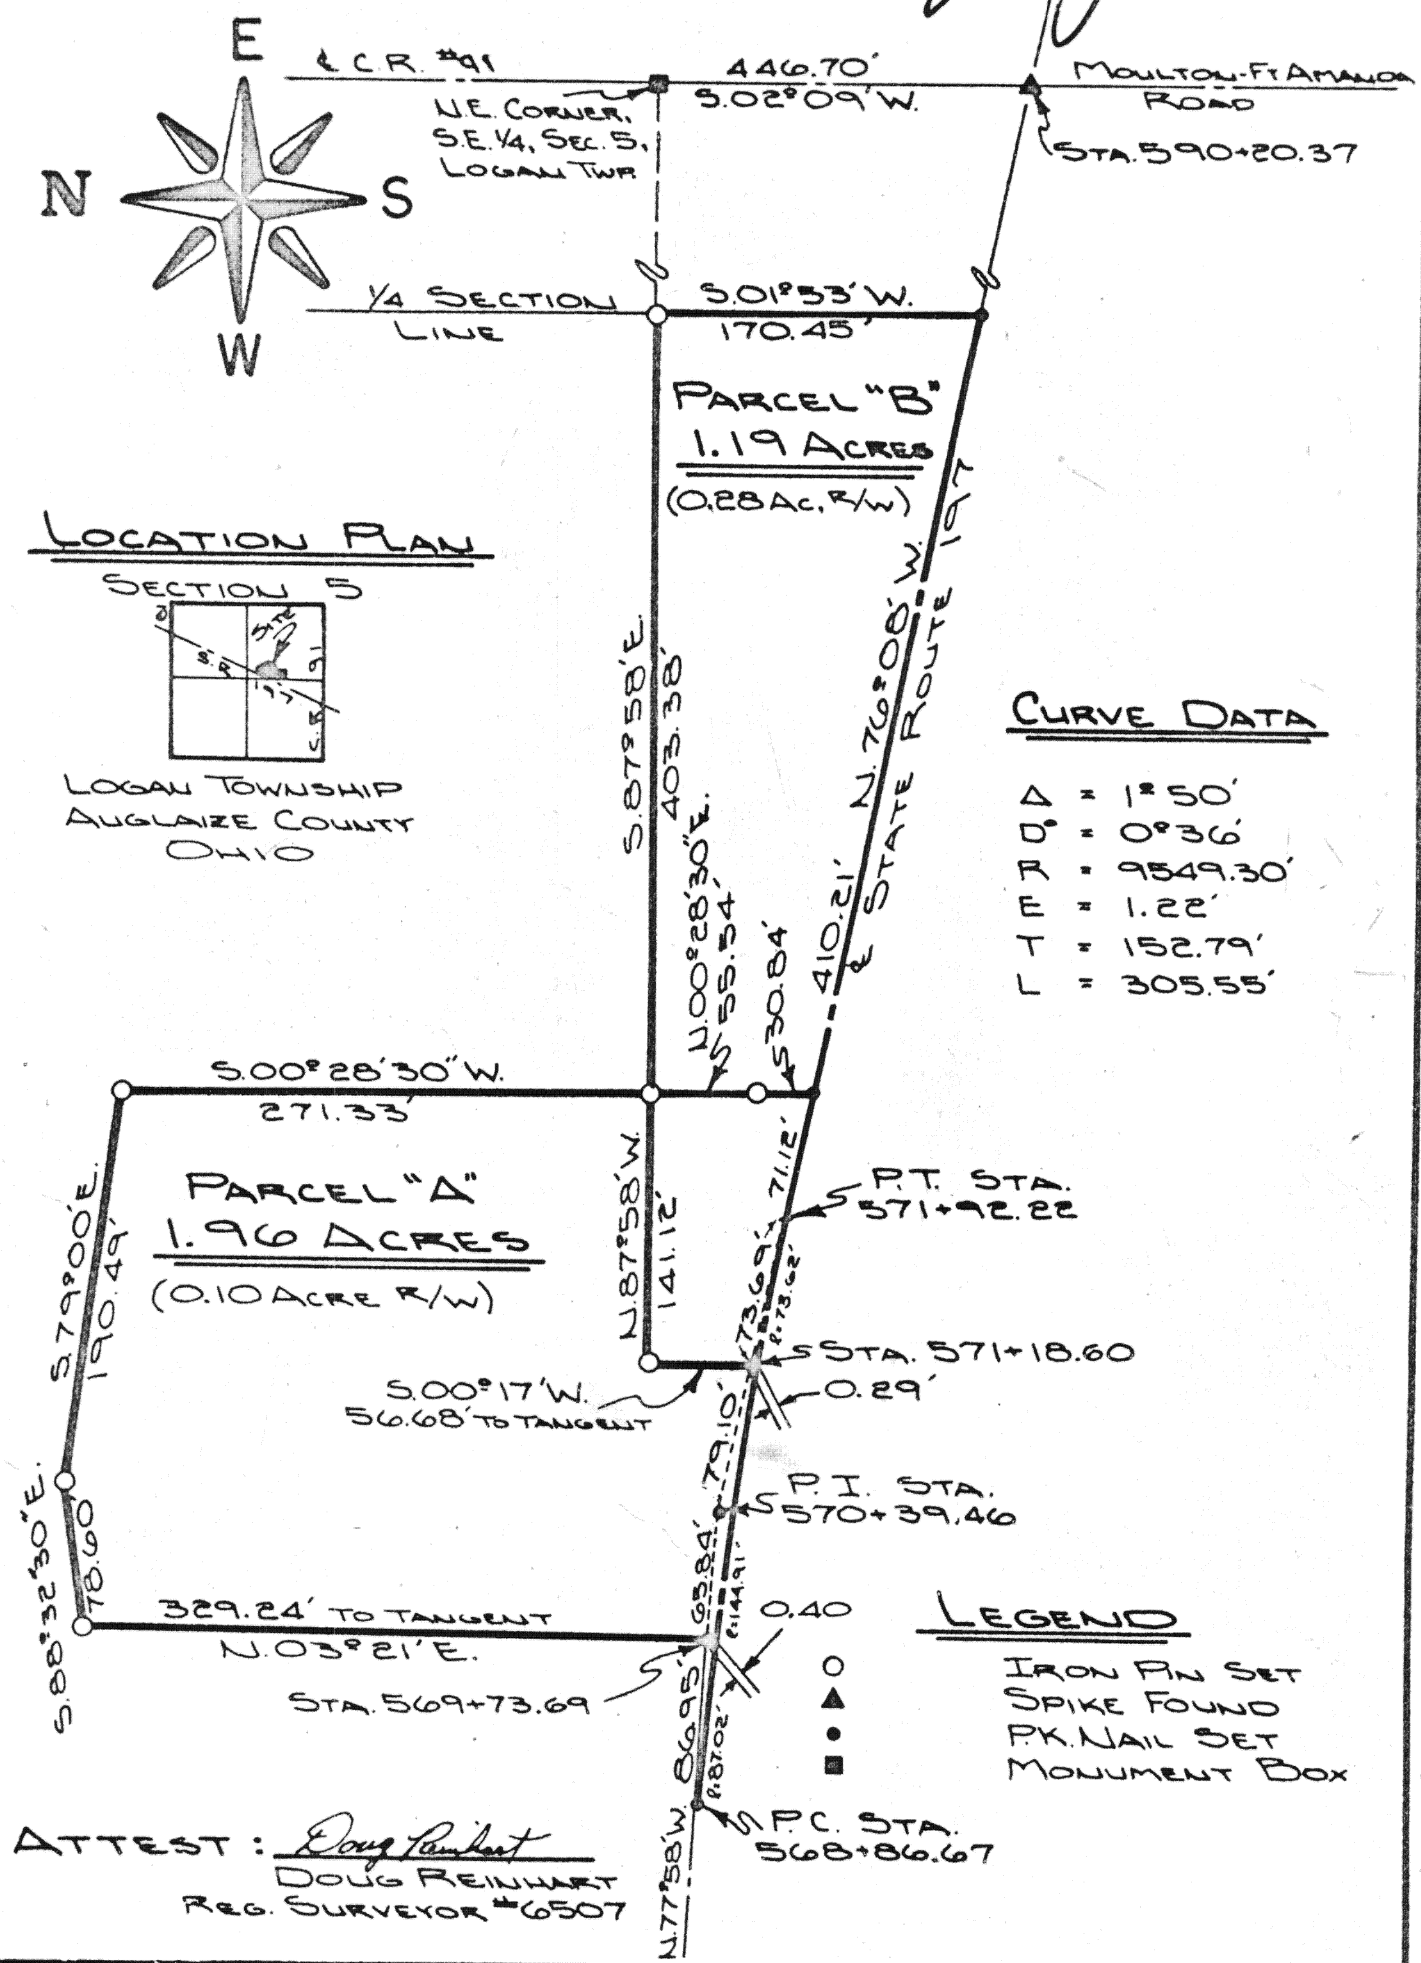 E
N
S
W
℄ C.R. #91
446.70'
S.02°09'W.
MOULTON-FT AMANDA
ROAD
N.E. CORNER,
S.E. 1/4, SEC. 5,
LOGAN TWP.
STA. 590+20.37
1/4 SECTION
LINE
S.01°53'W.
170.45'
PARCEL "B"
1.19 ACRES
(0.28 AC. R/W)
LOCATION PLAN
SECTION 5
SITE
S.R.
197
C.R.
91
LOGAN TOWNSHIP
AUGLAIZE COUNTY
OHIO
S.87°58'E.
403.38'
N.76°08'W.
410.21'
℄ STATE ROUTE 197
CURVE DATA
Δ = 1°50'
D° = 0°36'
R = 9549.30'
E = 1.22'
T = 152.79'
L = 305.55'
N.00°28'30"E.
55.54'
30.84'
S.00°28'30"W.
271.33'
PARCEL "A"
1.96 ACRES
(0.10 ACRE R/W)
S.79°00'E.
190.49'
N.87°58'W.
141.12'
71.12'
P.T. STA.
571+92.22
73.69'
73.62'
STA. 571+18.60
0.29'
S.00°17'W.
56.68' TO TANGENT
79.10'
P.I. STA.
570+39.46
65.84'
144.91'
S.88°32'30"E.
78.60
329.24' TO TANGENT
N.03°21'E.
0.40
STA. 569+73.69
86.95'
87.02'
P.C. STA.
568+86.67
N.77°58'W.
LEGEND
IRON PIN SET
SPIKE FOUND
P.K. NAIL SET
MONUMENT BOX
ATTEST: Doug Reinhart
DOUG REINHART
REG. SURVEYOR #6507